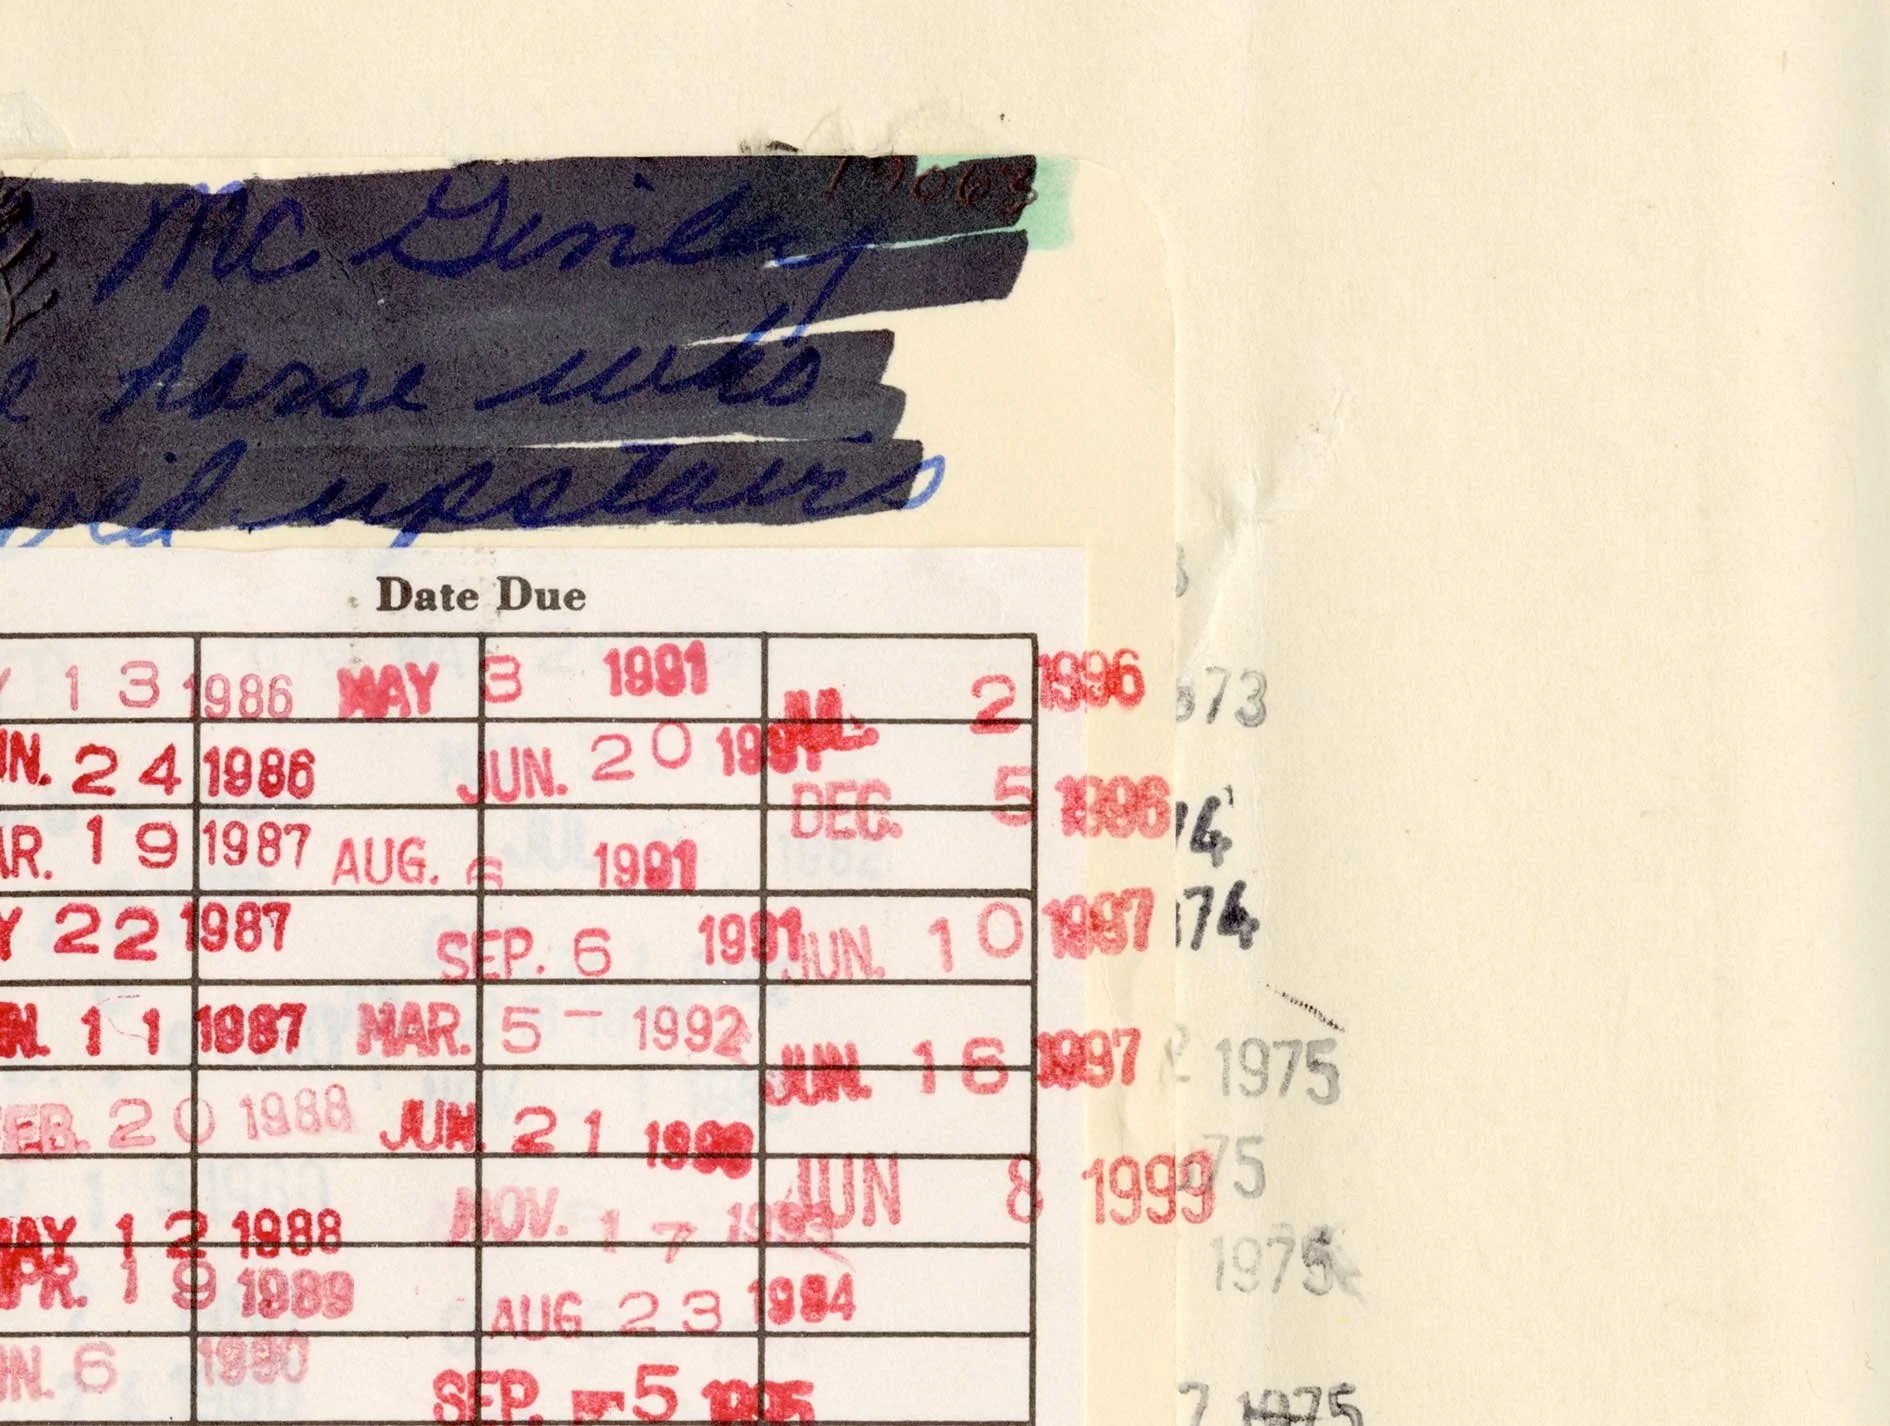 19063
Mc Ginley
horse who
upstairs
Date Due
Y 13 1986 MAY 3 1991 2 1996
UN. 24 1986 JUN. 20 1991
DEC. 5 1996
AR. 19 1987 AUG. 6 1991
Y 22 1987 SEP. 6 1991 JUN. 10 1997
UN. 11 1987 MAR. 5 - 1992
JUN. 16 1997
EB. 20 1988 JUN. 21 JUN 8 1999
MAY 12 1988 NOV. 17 1993
PR. 19 1989 AUG 23 1994
UN. 6 1990 SEP. -5 1995
73
74
74
2 1975
75
1975
7 1975